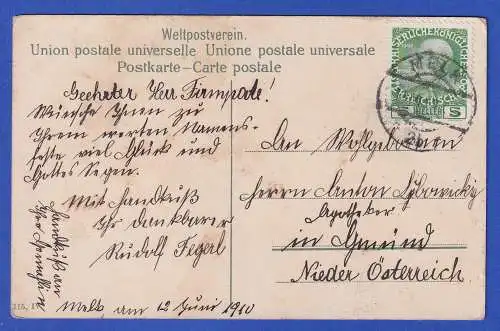 Weltpostverein.
Union postale universelle Unione postale universale
Postkarte – Carte postale
KAISERLICHE KÖNIGLICHE
MELK
HELLER
5
Geehrter Herr Firmpate!
Wünsche Ihnen zu
Ihrem werten Namens-
feste viel Glück und
Gottes Segen.
Mit Handkuß
Ihr dankbarer
Rudolf
Melk am 12 Juni 1910
Handkuß an
An Wohlgeboren
Herrn Anton
Apotheker
in Gmünd
Nieder Österreich